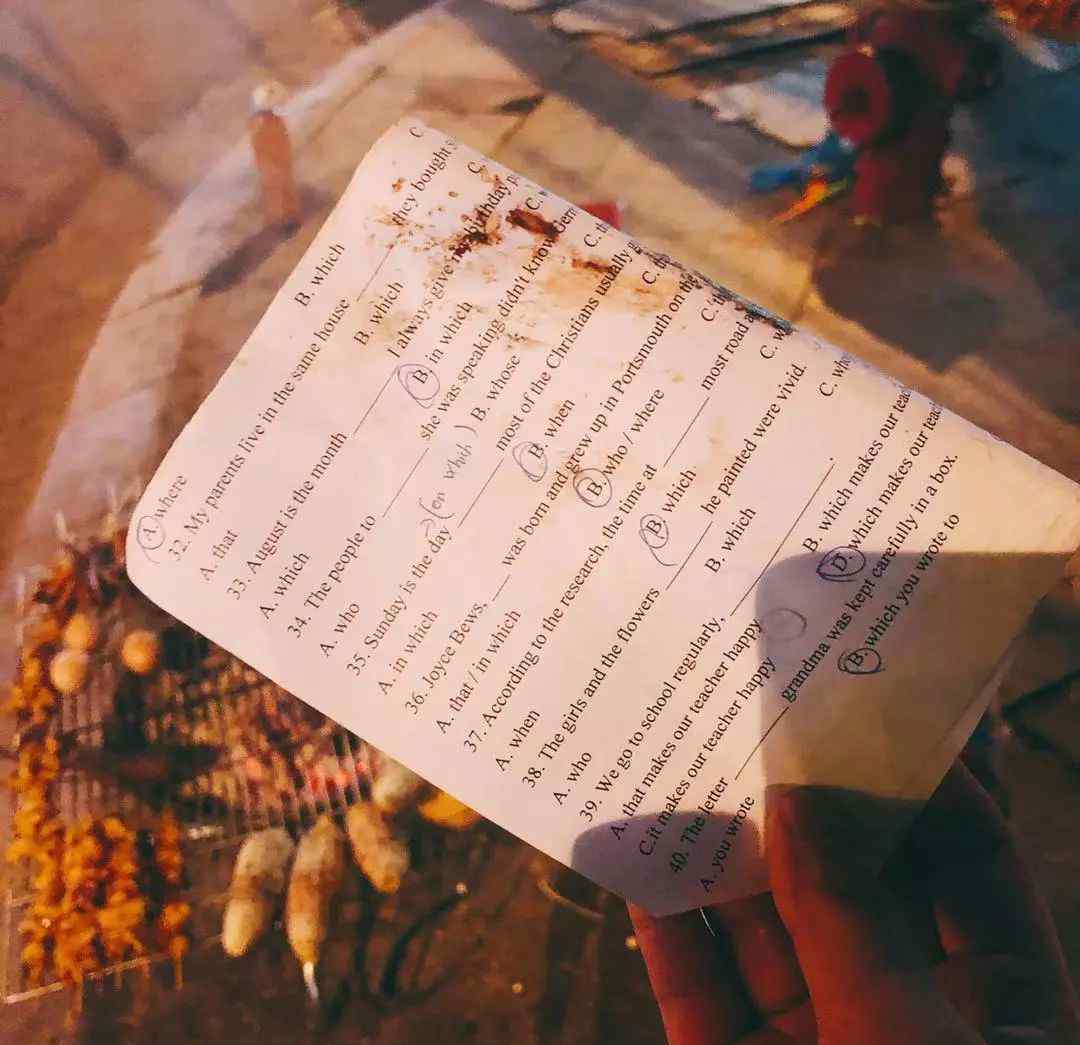 B. which C
A. where
32. My parents live in the same house ______ they bought
A. that B. which C.
33. August is the month ______ I always give birthday
A. which B. in which C.
34. The people to ______ she was speaking didn't know
A. who (on which) B. whose C.
35. Sunday is the day ______ most of the Christians usually
A. in which B. when C.
36. Joyce Bews, ______ was born and grew up in Portsmouth on
A. that / in which B. who / where C.
37. According to the research, the time at ______ most road
A. when B. which C.
38. The girls and the flowers ______ he painted were vivid.
A. who B. which C.
39. We go to school regularly, ______.
A. that makes our teacher happy B. which makes our
C.it makes our teacher happy D. which makes our
40. The letter ______ grandma was kept carefully in a box.
A. you wrote B. which you wrote to